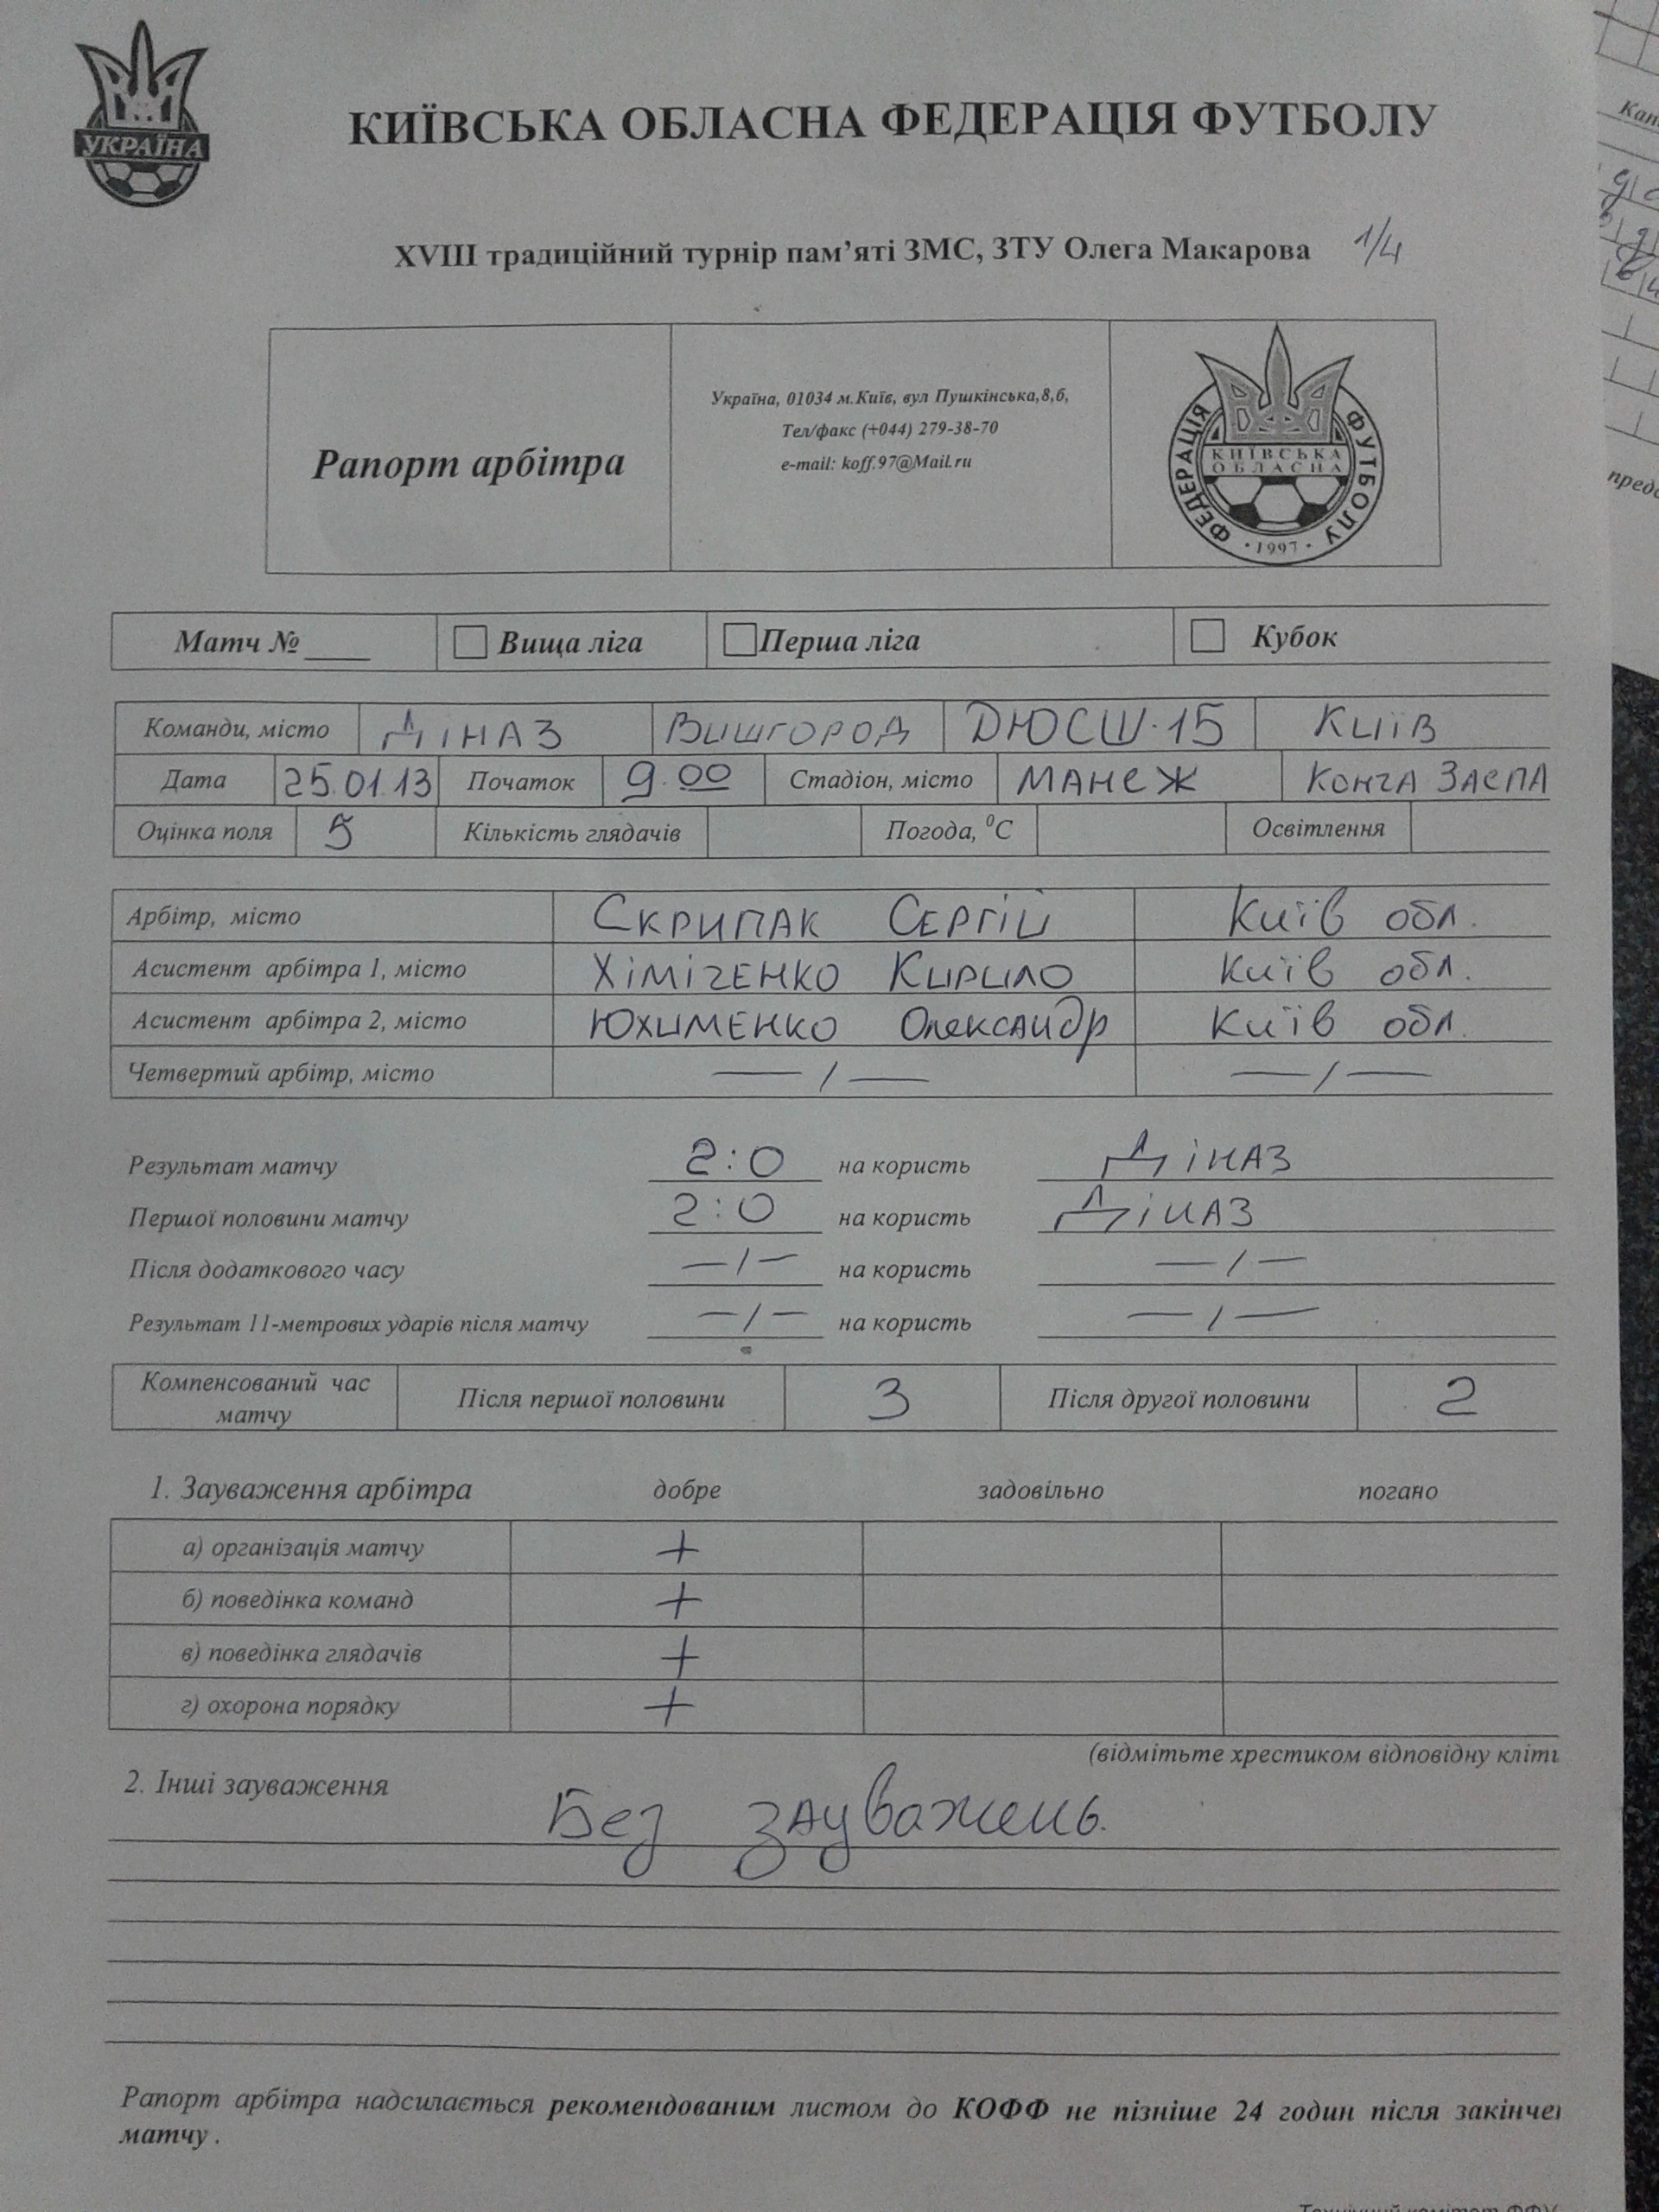 УКРАЇНА
КИЇВСЬКА ОБЛАСНА ФЕДЕРАЦІЯ ФУТБОЛУ
XVIII традиційний турнір пам’яті ЗМС, ЗТУ Олега Макарова 1/4
Рапорт арбітра
Україна, 01034 м.Київ, вул Пушкінська,8,б,
Тел/факс (+044) 279-38-70
e-mail: koff.97@Mail.ru
ФЕДЕРАЦІЯ ФУТБОЛУ
КИЇВСЬКА
ОБЛАСНА
· 1997 ·
Матч №____ Вища ліга Перша ліга Кубок
Команди, місто ДІНАЗ Вишгород ДЮСШ-15 Київ
Дата 25.01.13 Початок 9.00 Стадіон, місто МАНЕЖ КОНЧА ЗАСПА
Оцінка поля 5 Кількість глядачів Погода, ⁰С Освітлення
Арбітр, місто Скрипак Сергій Київ обл.
Асистент арбітра 1, місто Хіміченко Кирило Київ обл.
Асистент арбітра 2, місто Юхименко Олександр Київ обл.
Четвертий арбітр, місто —/— —/—
Результат матчу 2:0 на користь ДІНАЗ
Першої половини матчу 2:0 на користь ДІНАЗ
Після додаткового часу —/— на користь —/—
Результат 11-метрових ударів після матчу —/— на користь —/—
Компенсований час матчу Після першої половини 3 Після другої половини 2
1. Зауваження арбітра добре задовільно погано
а) організація матчу +
б) поведінка команд +
в) поведінка глядачів +
г) охорона порядку +
(відмітьте хрестиком відповідну кліти
2. Інші зауваження
Без зауважень.
Рапорт арбітра надсилається рекомендованим листом до КОФФ не пізніше 24 годин після закінчен
матчу .